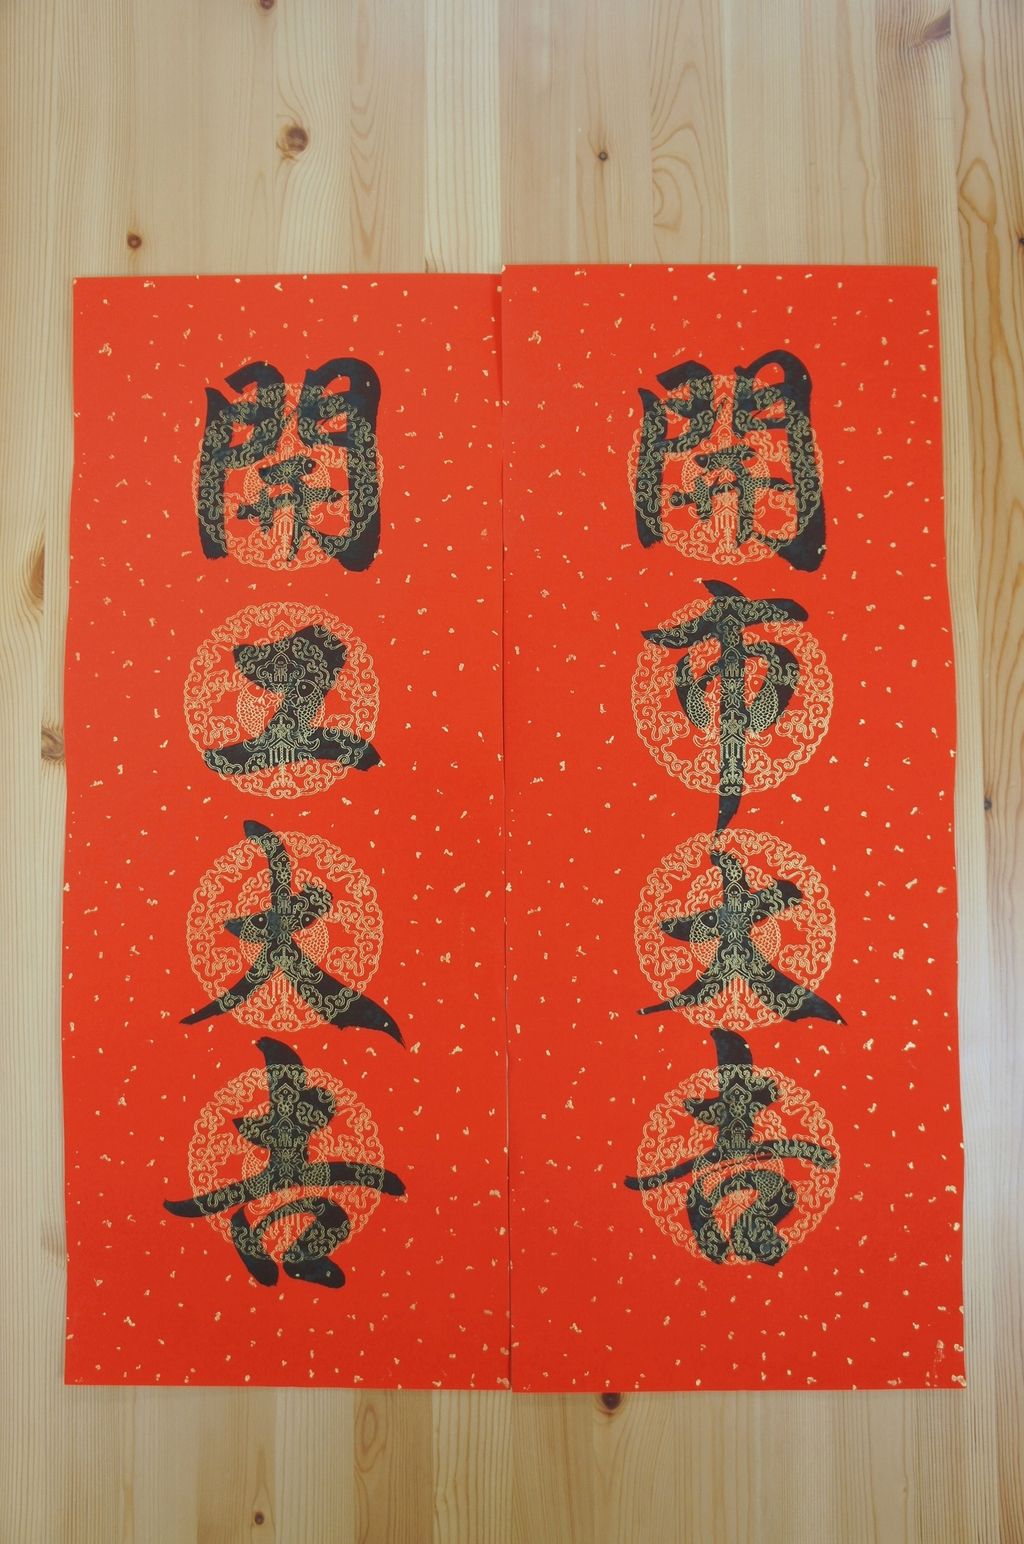 開市大吉
開工大吉